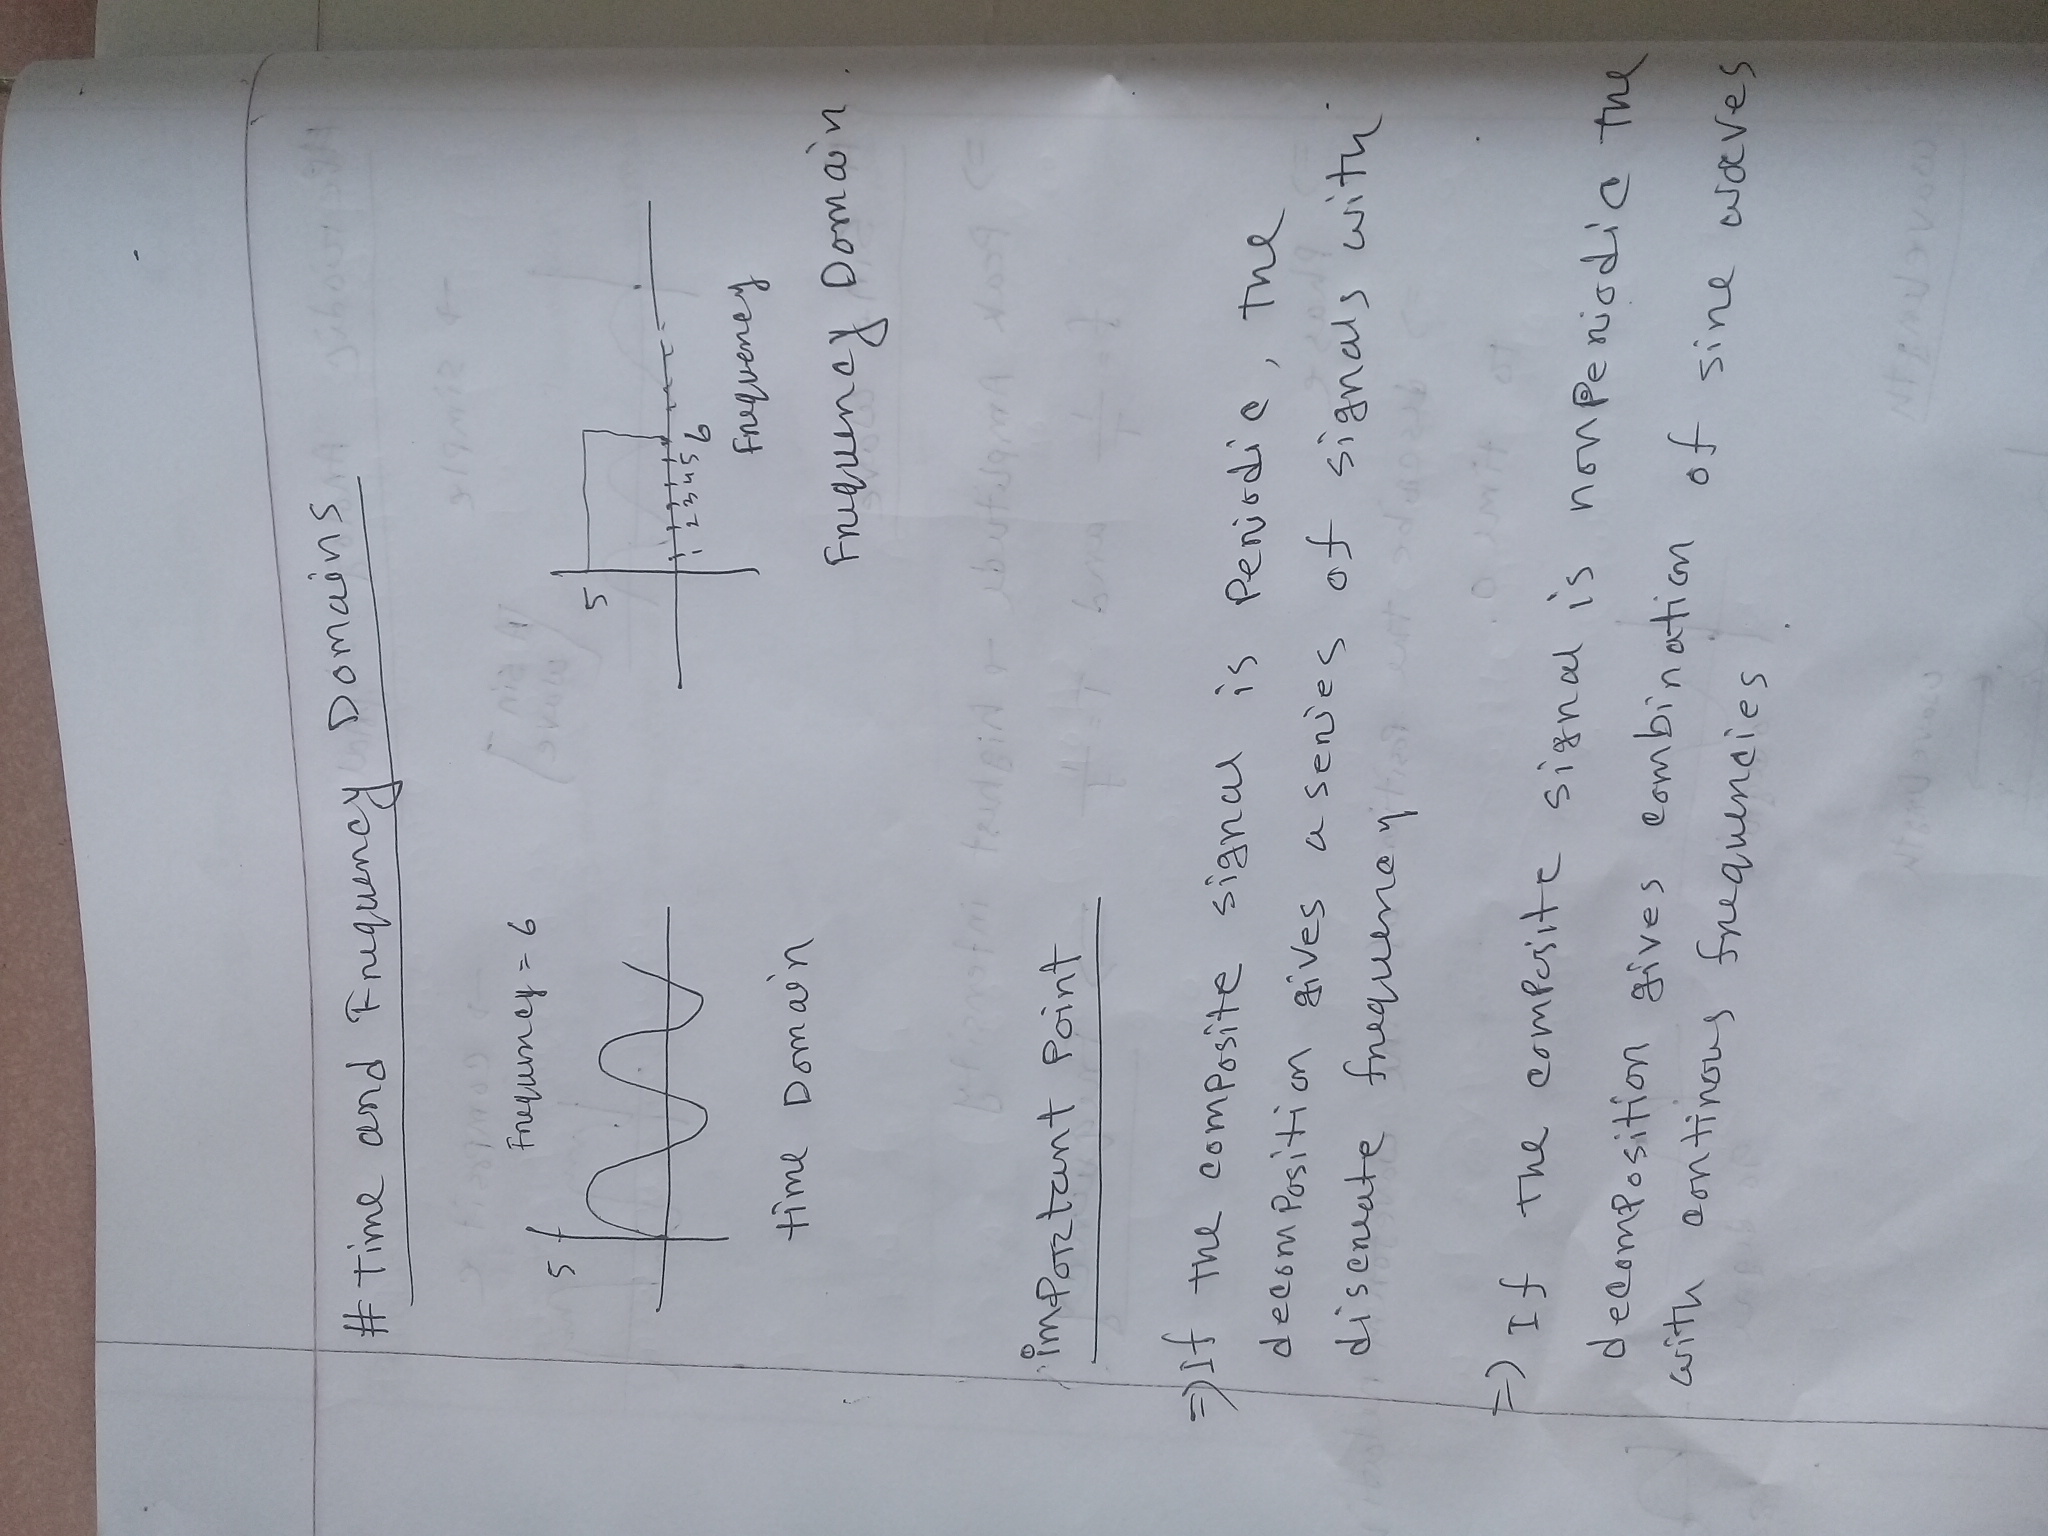 # Time and Frequency Domains
Frequency = 6
5
time Domain
5
1 2 3 4 5 6
Frequency
Frequency Domain.
important Point
=> If the composite signal is Periodic, the
decomposition gives a series of signals with
discreate frequency
=> If the composite signal is nonPeriodic the
decomposition gives combination of sine waves
with continous frequencies.